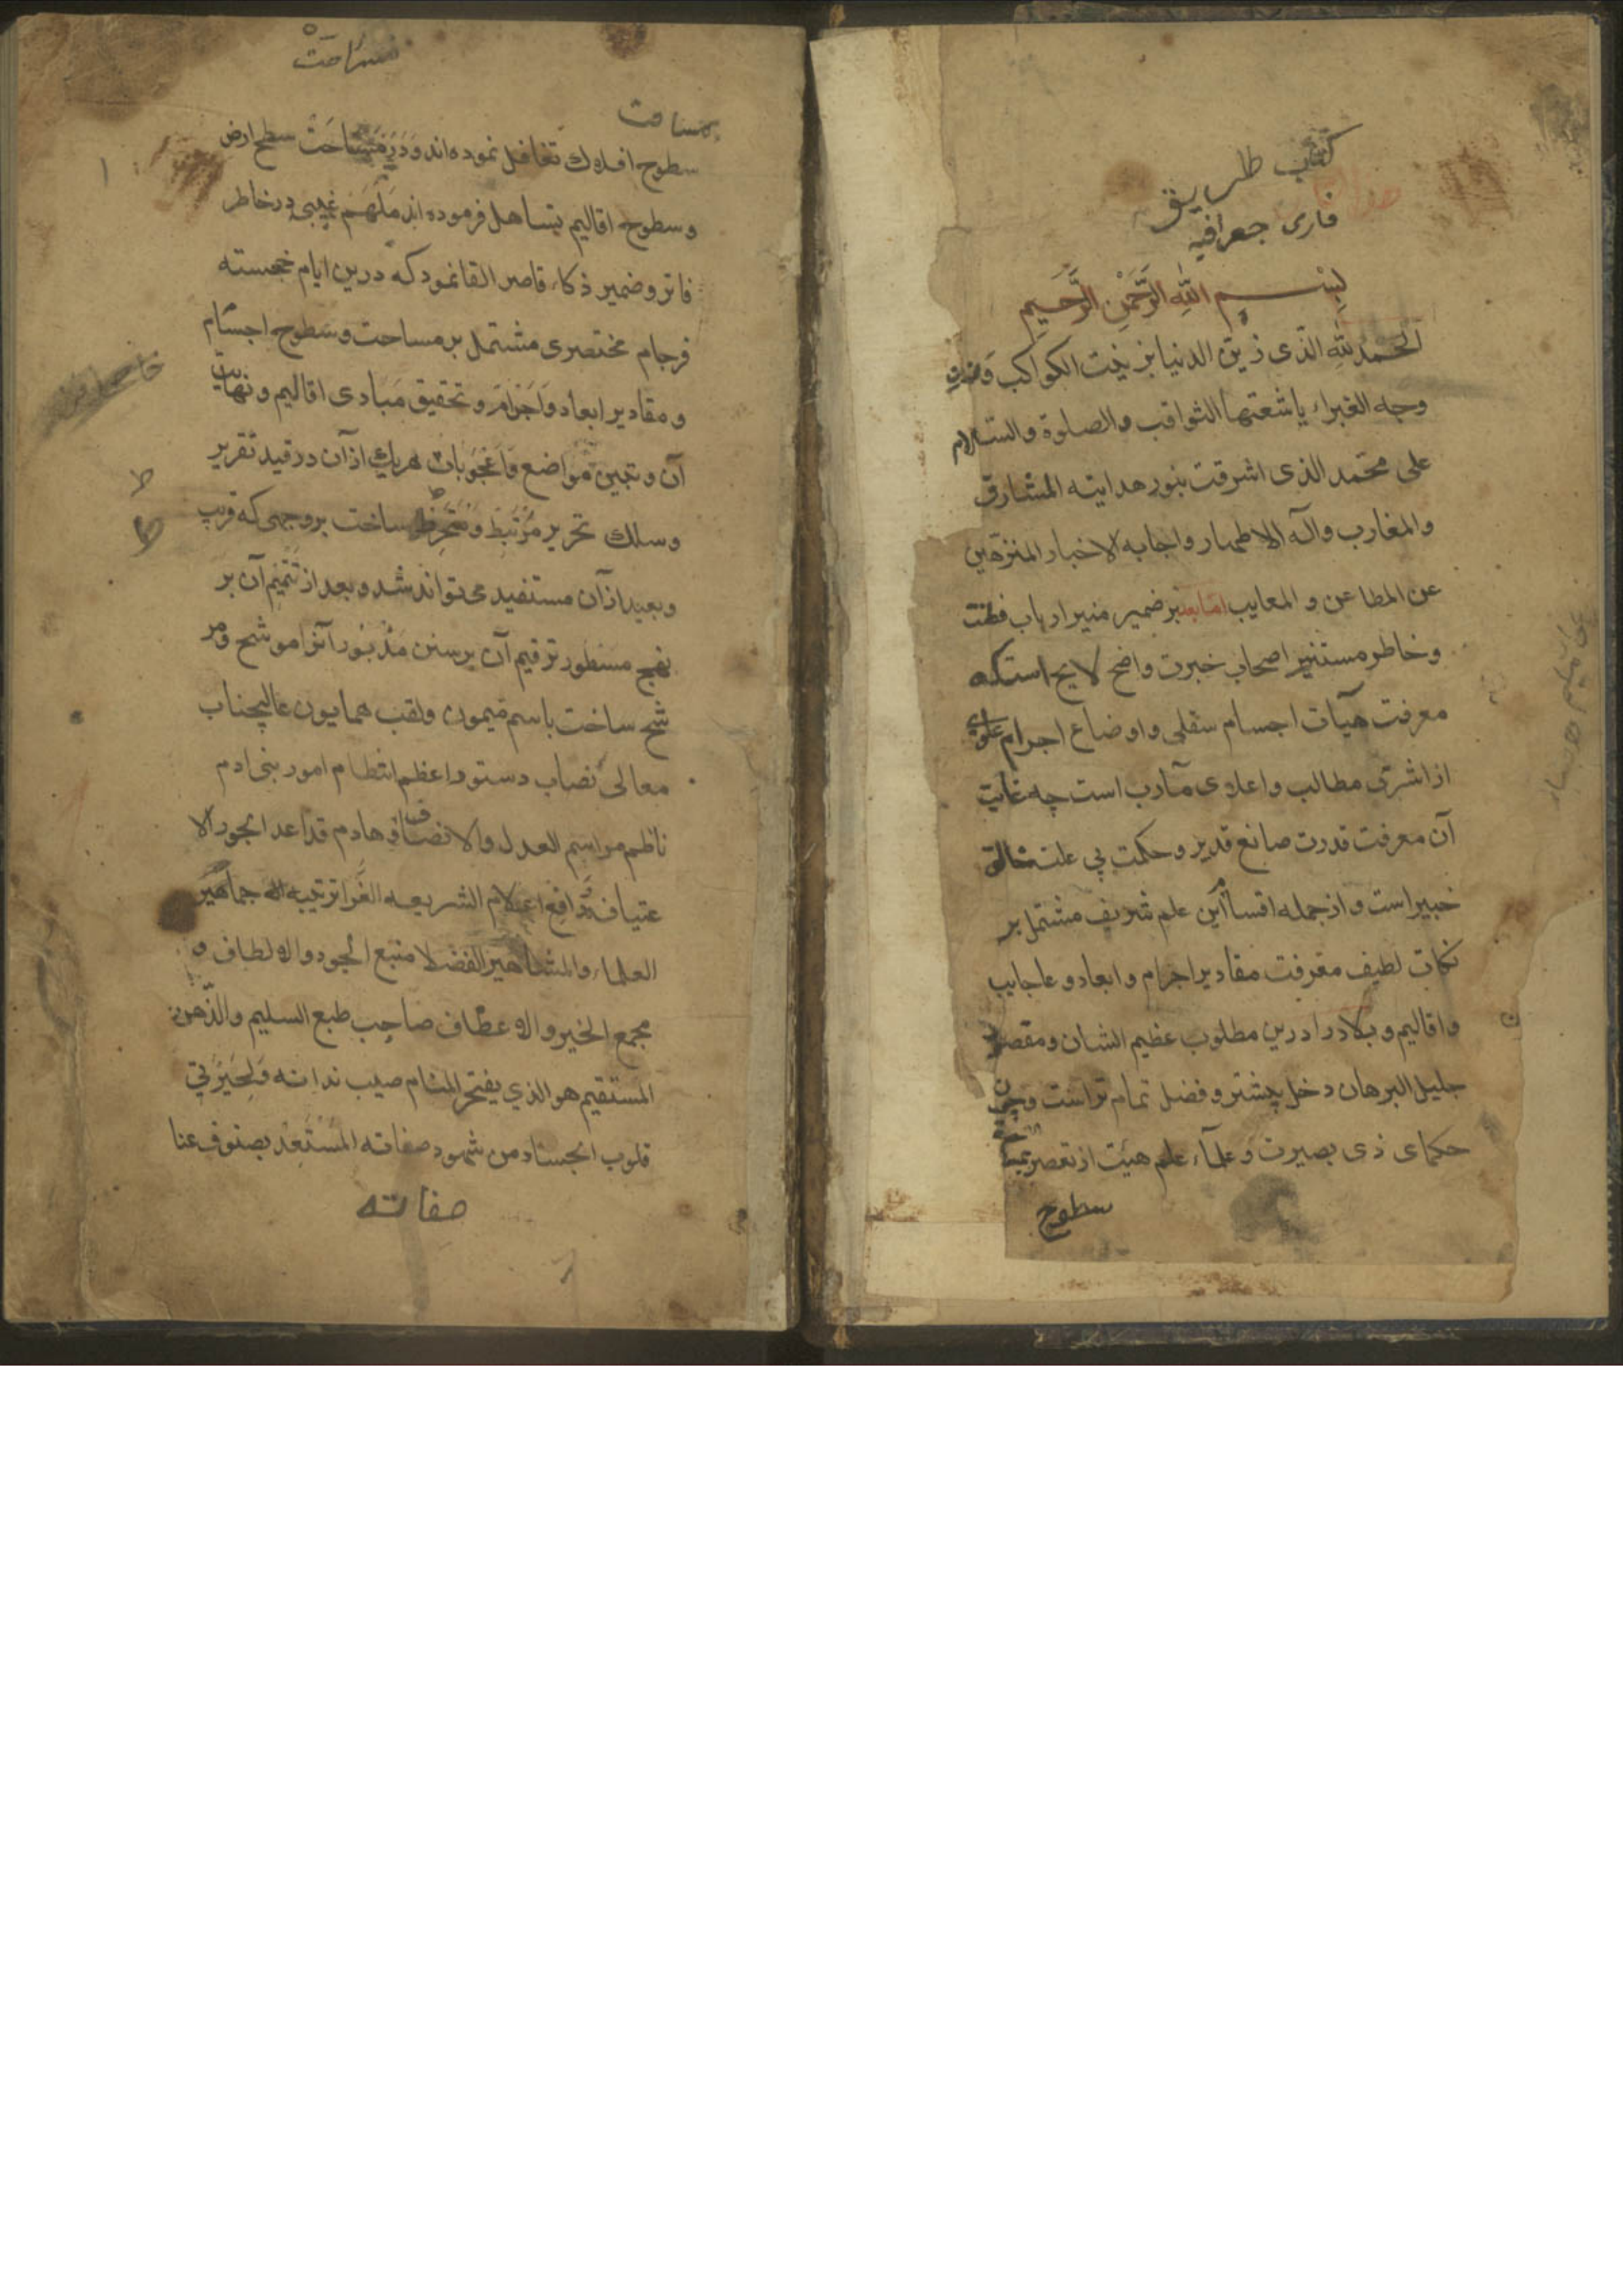 كتاب طريق
فارسى جعرافيه
بِسْمِ اللهِ الرَّحْمٰنِ الرَّحِيمِ
الحمد لله الذى زين الدنيا بزينت الكواكب
وجه الغبراء باشعتها الثواقب والصلوة والسلام
على محمد الذى اشرقت بنور هدايته المشارق
والمغارب وآله الاطهار واحبابه الاخيار المنزهين
عن المطاعن و المعايب اما بعد بر ضمير منير ارباب فطنت
وخاطر مستنير اصحاب خبرت واضح لايح است كه
معرفت هيآت اجسام سفلى واوضاع اجرام علوى
از اشرق مطالب واعلاى مآرب است چه غايت
آن معرفت قدرت صانع قدير وحكمت بى علت
خبير است و از جمله اقسام اين علم شريف مشتمل بر
نكات لطيف معرفت مقادير اجرام وابعاد وعاجايب
واقاليم و بلاد را درين مطلوب عظيم الشان ومقصد
جليل البرهان دخل بيشتر و فضل تمام تر است وچون
حكماى ذى بصيرت وعلماء علم هيئت از
سطوح
مساحت
مساحت
سطوح افلاك تغافل نموده اند ودر مساحت سطح ارض
وسطوح اقاليم تساهل فرموده اند ملهم غيبى در خاطر
فاتر وضمير ذكاء قاصر القا نمود كه درين ايام خجسته
فرجام مختصرى مشتمل بر مساحت وسطوح اجسام
ومقادير ابعاد واجرام وتحقيق مبادى اقاليم ونهايت
آن وتبيين مواضع واعجوبات هريك از آن در قيد تقرير
وسلك تحرير مرتبط ومنخرط ساخت بروجهى كه قريب
وبعيد از آن مستفيد تواند شد وبعد از تتميم آن بر
نهج مسطور ترقيم آن برسنن مذبور آنرا موشح ومر
شح ساخت باسم ميمون ولقب همايون عاليجناب
معالى نصاب دستور اعظم انتظام امور بنى ادم
ناظم مراسم العدل والانصاف وهادم قداعد الجور الا
عتياف رافع اعلام الشريعه الغرا جماهير
العلماء والمشاهير الفضلا منبع الجود والالطاف و
مجمع الخير والاعطاف صاحب طبع السليم والذهن
المستقيم هو الذي يفتخر المشام صيب نداته
قلوب الحساد من شهود صفاته المستعد بصنوف عنا
صفاته